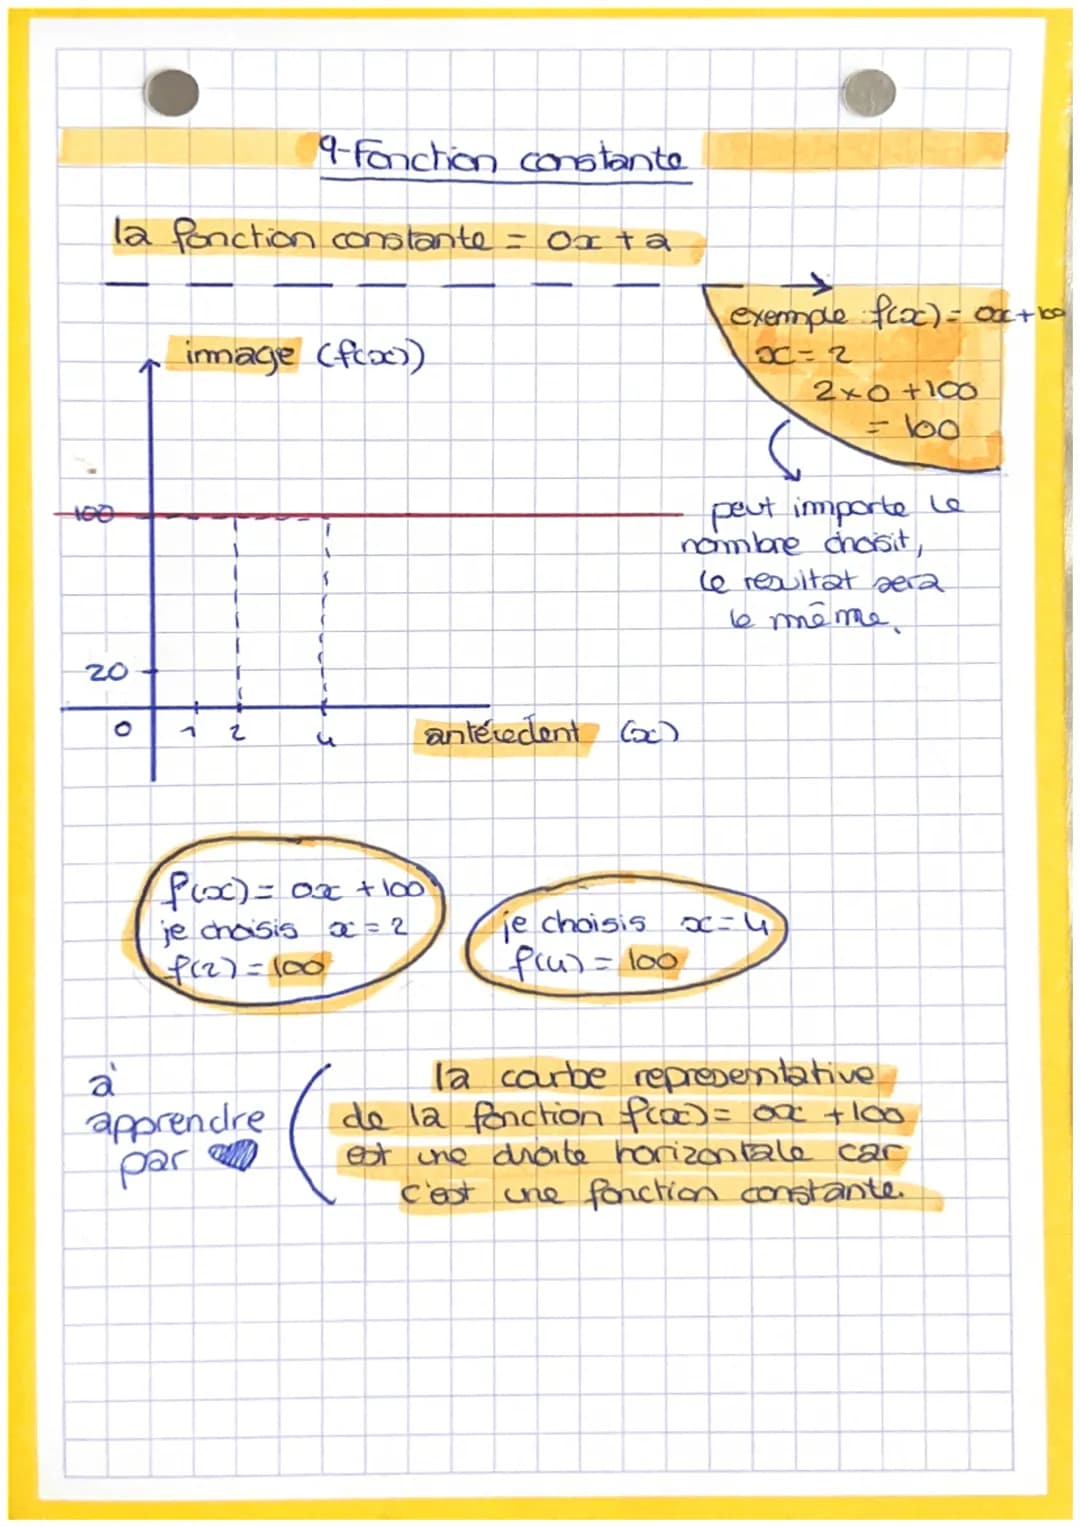 9-Fonction constante
la fonction constante = 0x + a
exemple : f(x) = 0x + 100
x = 2
2 × 0 + 100
= 100
peut importe le
nombre choisit,
le resultat sera
le même.
image (f(x))
100
20
0 1 2 4
antécedent (x)
f(x) = 0x + 100
je choisis x = 2
f(2) = 100
je choisis x = 4
f(4) = 100
à
apprendre
par
la courbe representative
de la fonction f(x) = 0x + 100
est une droite horizontale car
c'est une fonction constante.